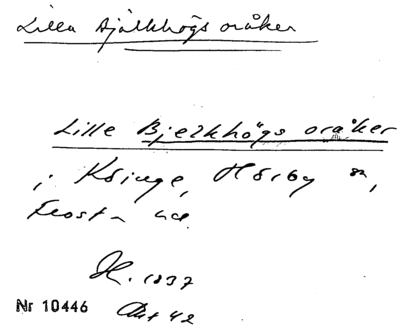 Lilla Bjälkhögs oråker
Lille Bjelkhögs oråker
i Köinge, Hörby sn,
Frosta hd.
H. 1837
Nr 10446 Akt 42